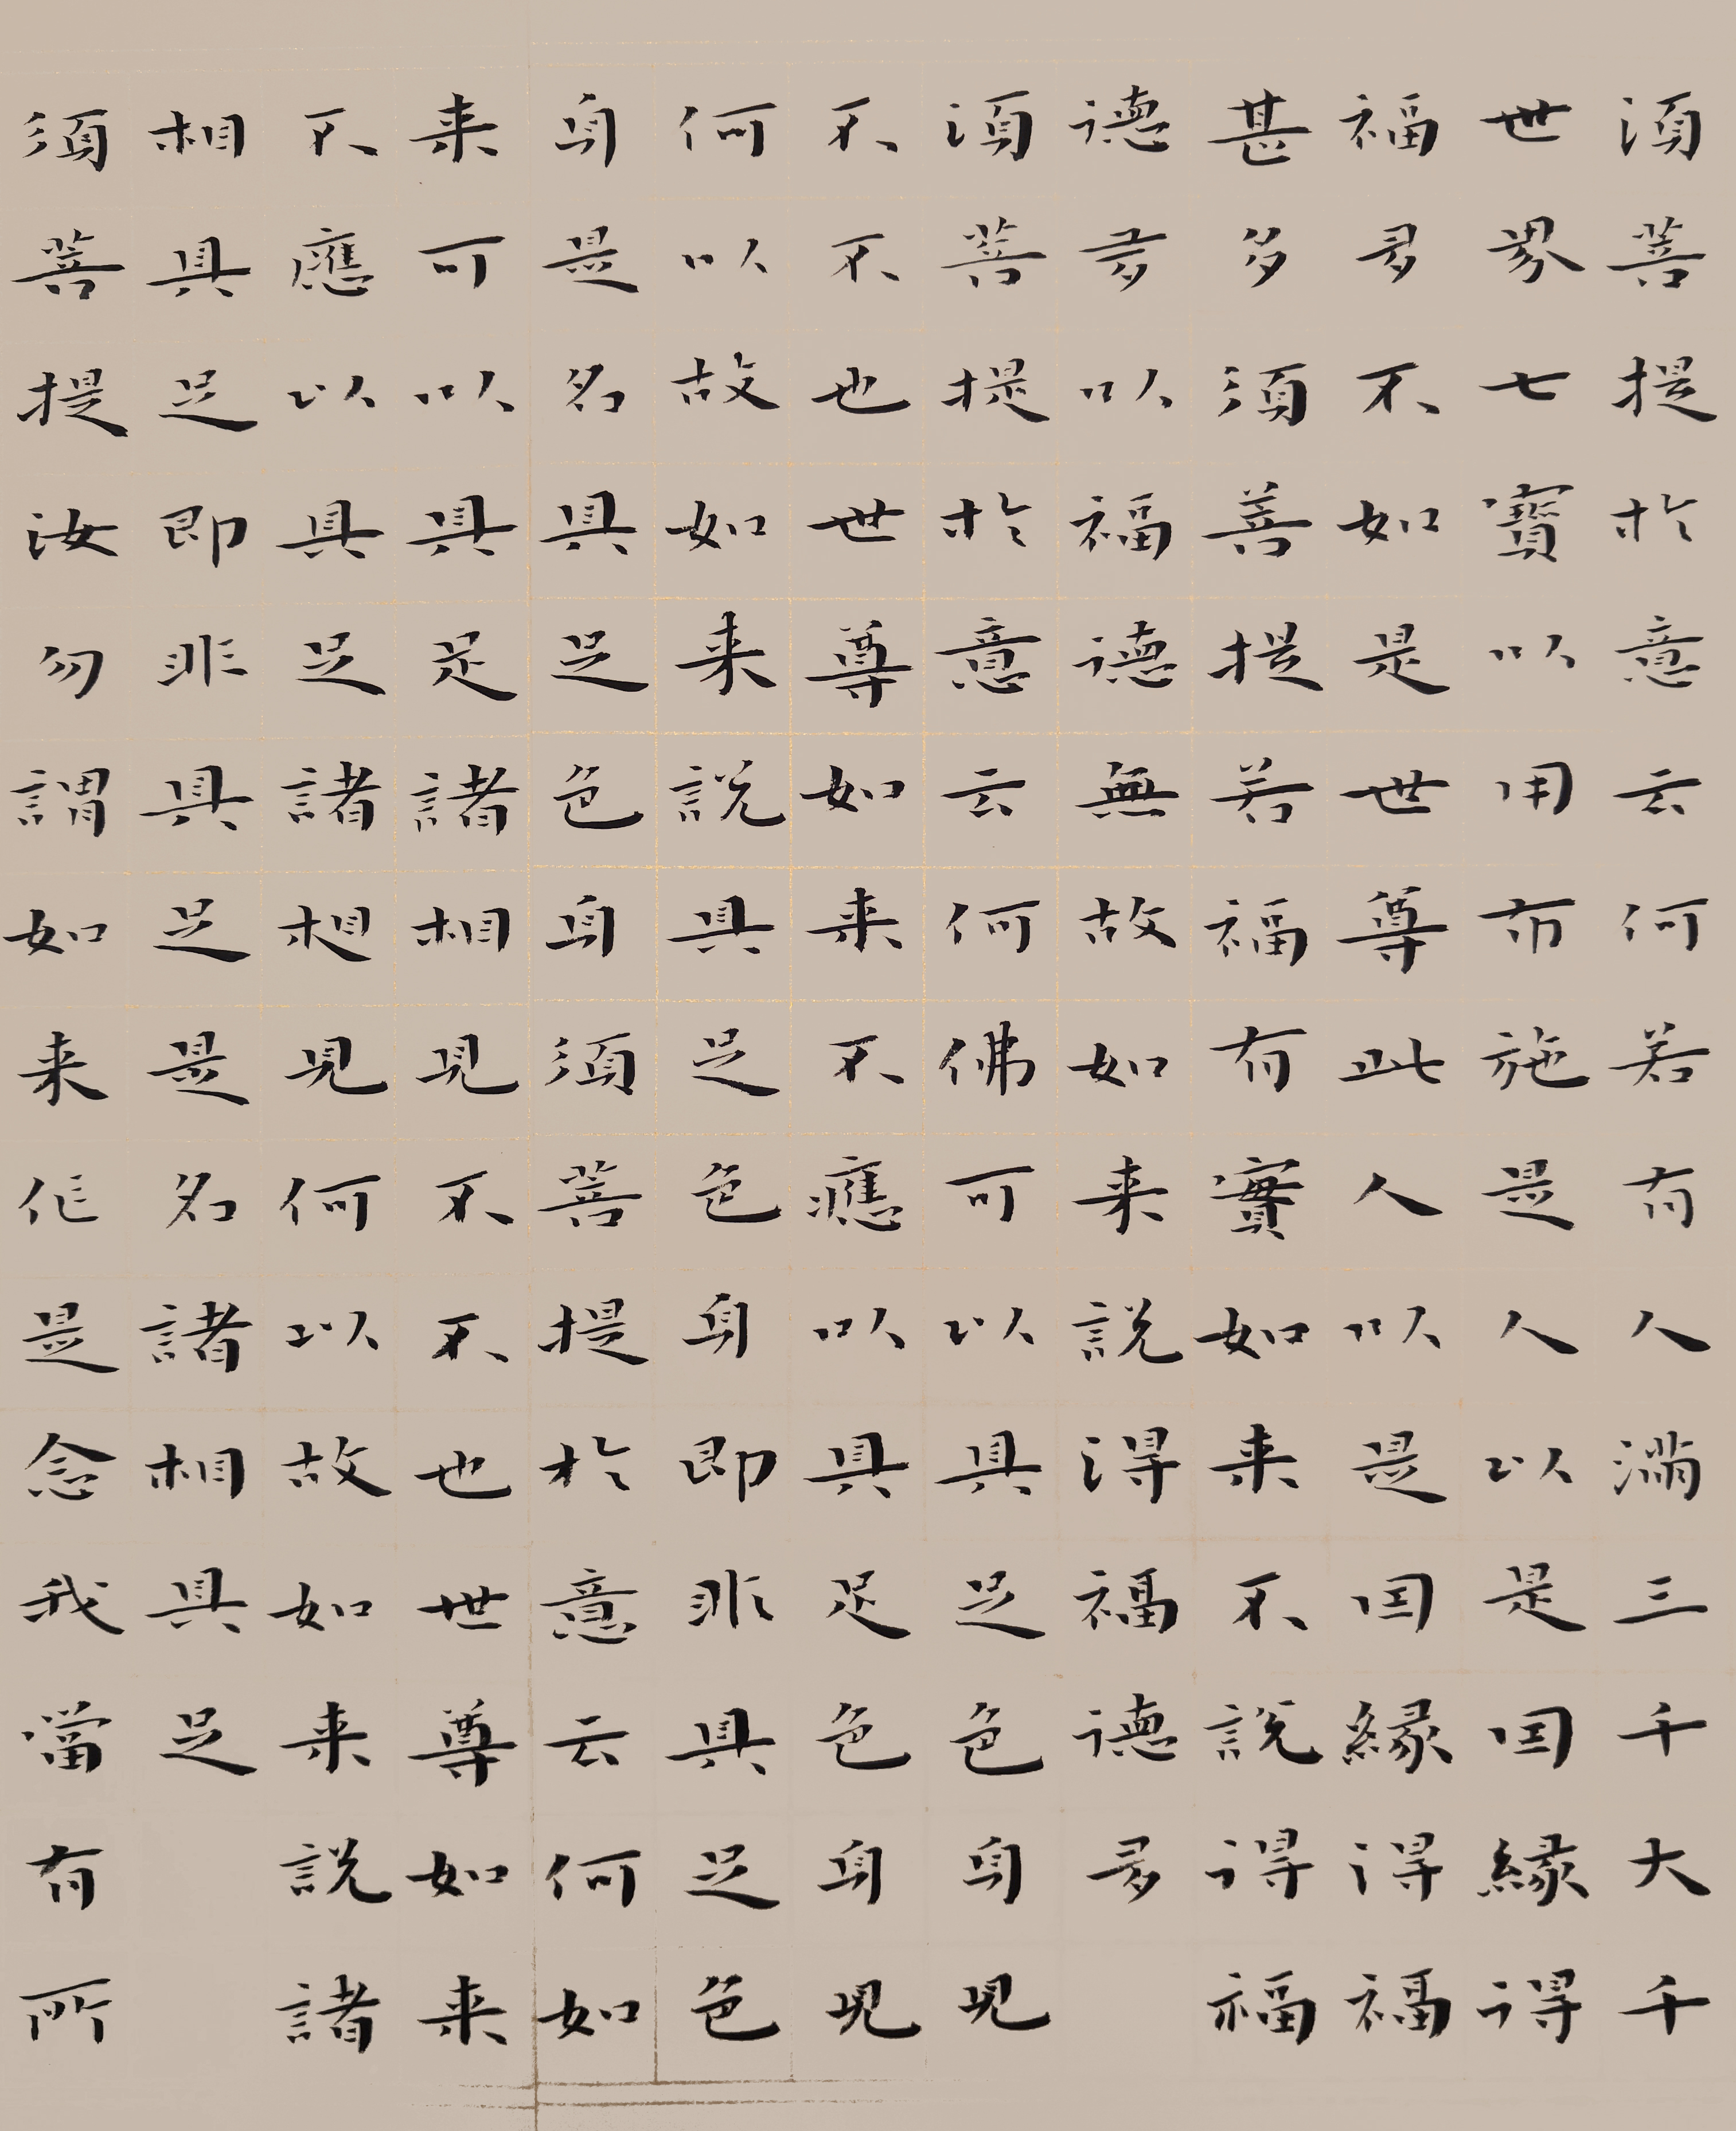 須菩提於意云何若有人滿三千大千
世界七寶以用布施是人以是因緣得
福多不如是世尊此人以是因緣得福
甚多須菩提若福有實如来不說得福
德多以福德無故如来說得福德多
須菩提於意云何佛可以具足色身見
不不也世尊如来不應以具足色身見
何以故如来說具足色身即非具足色
身是名具足色身須菩提於意云何如
来可以具足諸相見不不也世尊如来
不應以具足諸相見何以故如来說諸
相具足即非具足是名諸相具足
須菩提汝勿謂如来作是念我當有所